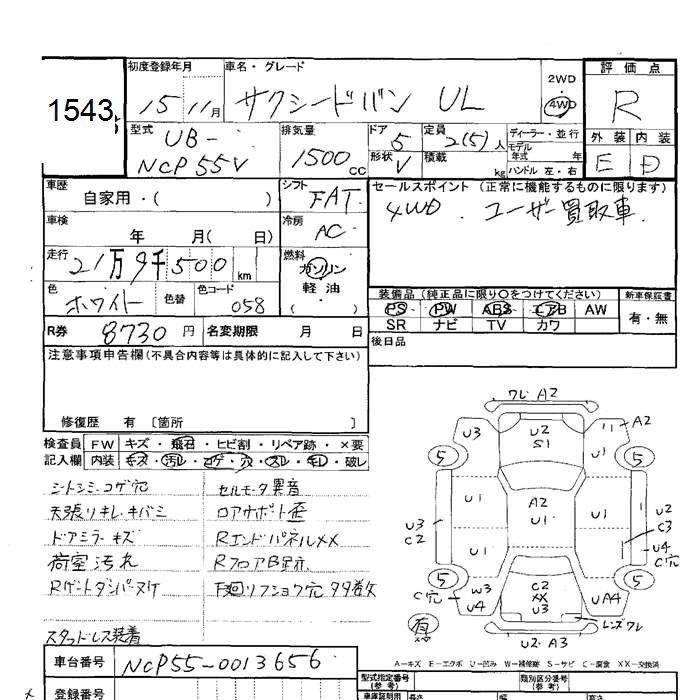 1543
初度登録年月 15年 11月
車名・グレード サクシードバン UL
2WD
4WD
評価点 R
型式 UB-NCP55V
排気量 1500cc
ドア 5
形状 V
定員 2(5)人
積載 kg
ディーラー・並行
モデル年式 年
ハンドル 左・右
外装 E
内装 D
車歴 自家用・( )
シフト FAT
セールスポイント (正常に機能するものに限ります)
4WD . ユーザー買取車.
車検 年 月( 日)
冷房 AC
走行 21万9千500km
燃料 ガソリン
軽油
( )
色 ホワイト
色替
色コード 058
装備品 (純正品に限り○をつけてください)
新車保証書
PS PW ABS エアB AW
有・無
SR ナビ TV カワ
R券 8730円
名変期限 月 日
後日品
注意事項申告欄(不具合内容等は具体的に記入して下さい)
修復歴 有 [箇所 ]
検査員記入欄
FW キズ・飛石・ヒビ割・リペア跡・×要
内装 キズ・汚レ・コゲ・穴・スレ・キレ・破レ
シートシミ・コゲ穴
天張リキレ・キバミ
ドアミラーキズ
荷室汚れ
Rゲートダンパーヌケ
スタッドレス装着
セルモータ異音
ロアサポート歪
RエンドパネルXX
RフロアB
下廻リフショク穴
ワレ A2
U3
U2
S1
A2
U1
5
5
U3
C2
U1
A2
U1
U1
U2
C3
U4
C穴
U1
5
5
C穴
W3
U4
C2
XX
U3
UA4
レンズワレ
有
U2・A3
A-キズ E-エクボ U-凹み W-補修跡 S-サビ C-腐食 XX-交換済
車台番号 NCP55-0013656
型式指定番号(参考)
類別区分番号(参考)
登録番号
車庫証明用(参考)
長さ
幅
高さ